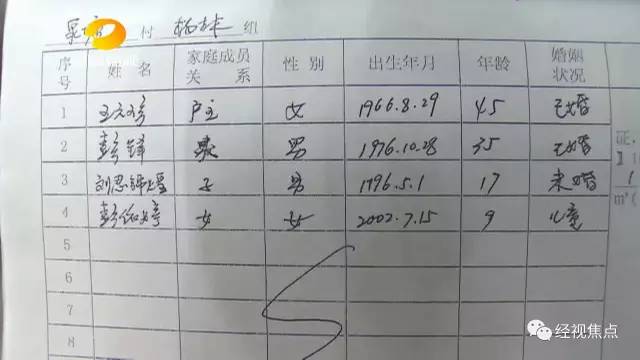 村 杨林 组
序号 姓名 家庭成员关系 性别 出生年月 年龄 婚姻状况
1 户主 女 1966.8.29 45 已婚
2 彭锋 夫 男 1976.10.28 35 已婚
3 刘思 子 男 1996.5.1 17 未婚
4 彭 女 女 2002.7.15 9 儿童
5
6
7
8
证,
1
m²(
经视焦点